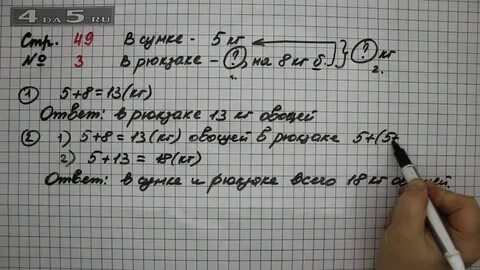 4DA5.RU
Стр. 49 В сумке - 5 кг
№ 3 В рюкзаке - ?, на 8 кг б. ? кг
1. 2.
① 5+8=13(кг)
Ответ: в рюкзаке 13 кг овощей
② 1) 5+8=13(кг) овощей в рюкзаке 5+(5+
2) 5+13=18(кг)
Ответ: в сумке и рюкзаке всего 18 кг овощей.